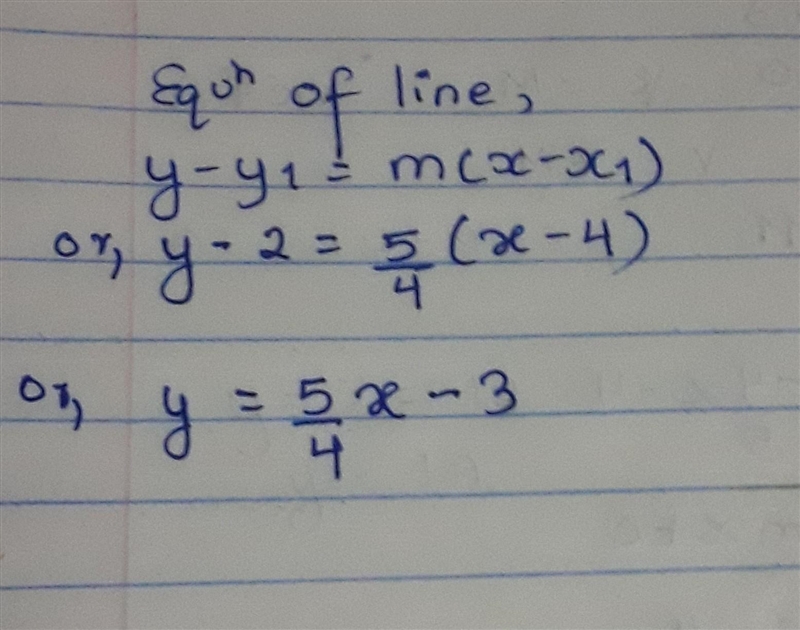 Equⁿ of line,
y - y1 = m(x - x1)
or, y - 2 = 5/4 (x - 4)
or, y = 5/4 x - 3